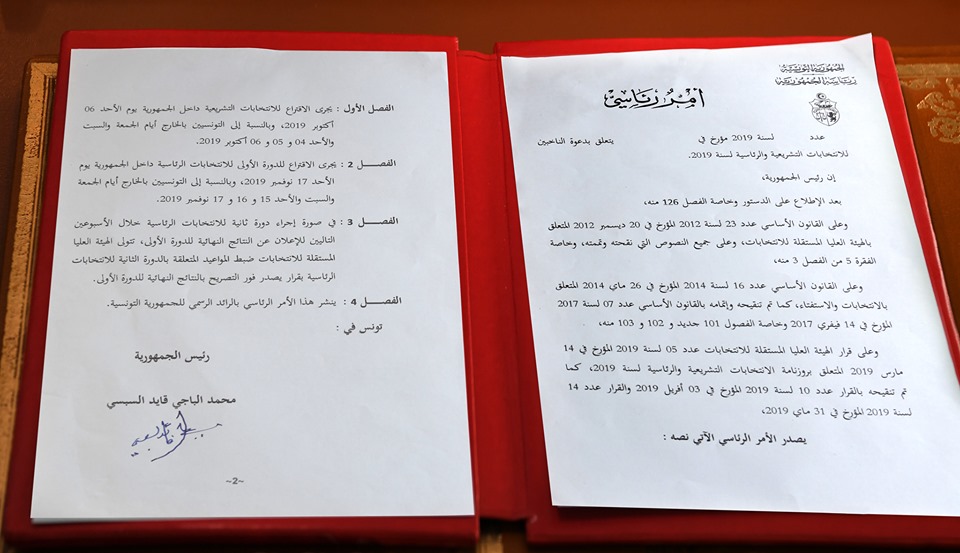 الجمهورية التونسية
رئاسة الجمهورية
أمر رئاسي
عدد لسنة 2019 مؤرخ في يتعلق بدعوة الناخبين
للانتخابات التشريعية والرئاسية لسنة 2019.
إن رئيس الجمهورية،
بعد الإطلاع على الدستور وخاصة الفصل 126 منه،
وعلى القانون الأساسي عدد 23 لسنة 2012 المؤرخ في 20 ديسمبر 2012 المتعلق
بالهيئة العليا المستقلة للانتخابات، وعلى جميع النصوص التي نقحته وتممته، وخاصة
الفقرة 5 من الفصل 3 منه،
وعلى القانون الأساسي عدد 16 لسنة 2014 المؤرخ في 26 ماي 2014 المتعلق
بالانتخابات والاستفتاء، كما تم تنقيحه وإتمامه بالقانون الأساسي عدد 07 لسنة 2017
المؤرخ في 14 فيفري 2017 وخاصة الفصول 101 جديد و 102 و 103 منه،
وعلى قرار الهيئة العليا المستقلة للانتخابات عدد 05 لسنة 2019 المؤرخ في 14
مارس 2019 المتعلق بروزنامة الانتخابات التشريعية والرئاسية لسنة 2019، كما
تم تنقيحه بالقرار عدد 10 لسنة 2019 المؤرخ في 03 أفريل 2019 والقرار عدد 14
لسنة 2019 المؤرخ في 31 ماي 2019،
يصدر الأمر الرئاسي الآتي نصه :
الفصل الأول : يجرى الاقتراع للانتخابات التشريعية داخل الجمهورية يوم الأحد 06
أكتوبر 2019، وبالنسبة إلى التونسيين بالخارج أيام الجمعة والسبت
والأحد 04 و 05 و 06 أكتوبر 2019.
الفصــل 2 : يجرى الاقتراع للدورة الأولى للانتخابات الرئاسية داخل الجمهورية يوم
الأحد 17 نوفمبر 2019، وبالنسبة إلى التونسيين بالخارج أيام الجمعة
والسبت والأحد 15 و 16 و 17 نوفمبر 2019.
الفصــل 3 : في صورة إجراء دورة ثانية للانتخابات الرئاسية خلال الأسبوعين
التاليين للإعلان عن النتائج النهائية للدورة الأولى، تتولى الهيئة العليا
المستقلة للانتخابات ضبط المواعيد المتعلقة بالدورة الثانية للانتخابات
الرئاسية بقرار يصدر فور التصريح بالنتائج النهائية للدورة الأولى.
الفصــل 4 : ينشر هذا الأمر الرئاسي بالرائد الرسمي للجمهورية التونسية.
تونس في :
رئيس الجمهورية
محمد الباجي قايد السبسي
~2~